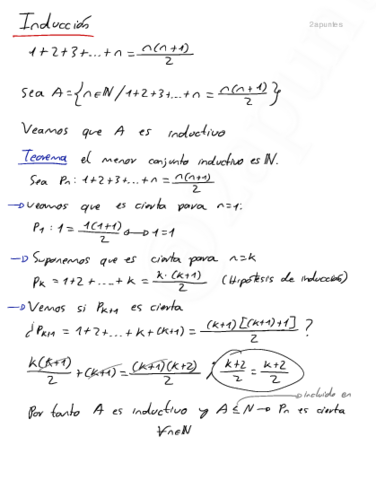 Inducción
2apuntes
1+2+3+...+n = n(n+1)/2
Sea A = {n∈ℕ / 1+2+3+...+n = n(n+1)/2}
Veamos que A es inductivo
Teorema el menor conjunto inductivo es ℕ.
Sea Pn: 1+2+3+...+n = n(n+1)/2
→ veamos que es cierta para n=1:
P1: 1 = 1(1+1)/2 → 1=1
→ Suponemos que es cierta para n=k
Pk = 1+2+...+k = k·(k+1)/2 (Hipótesis de inducción)
→ Vemos si Pk+1 es cierta
¿Pk+1 = 1+2+...+k+(k+1) = (k+1)[(k+1)+1]/2 ?
k(k+1)/2 + (k+1) = (k+1)(k+2)/2 ; k+2/2 = k+2/2
incluido en
Por tanto A es inductivo y A ⊆ N → Pn es cierta
∀n∈ℕ